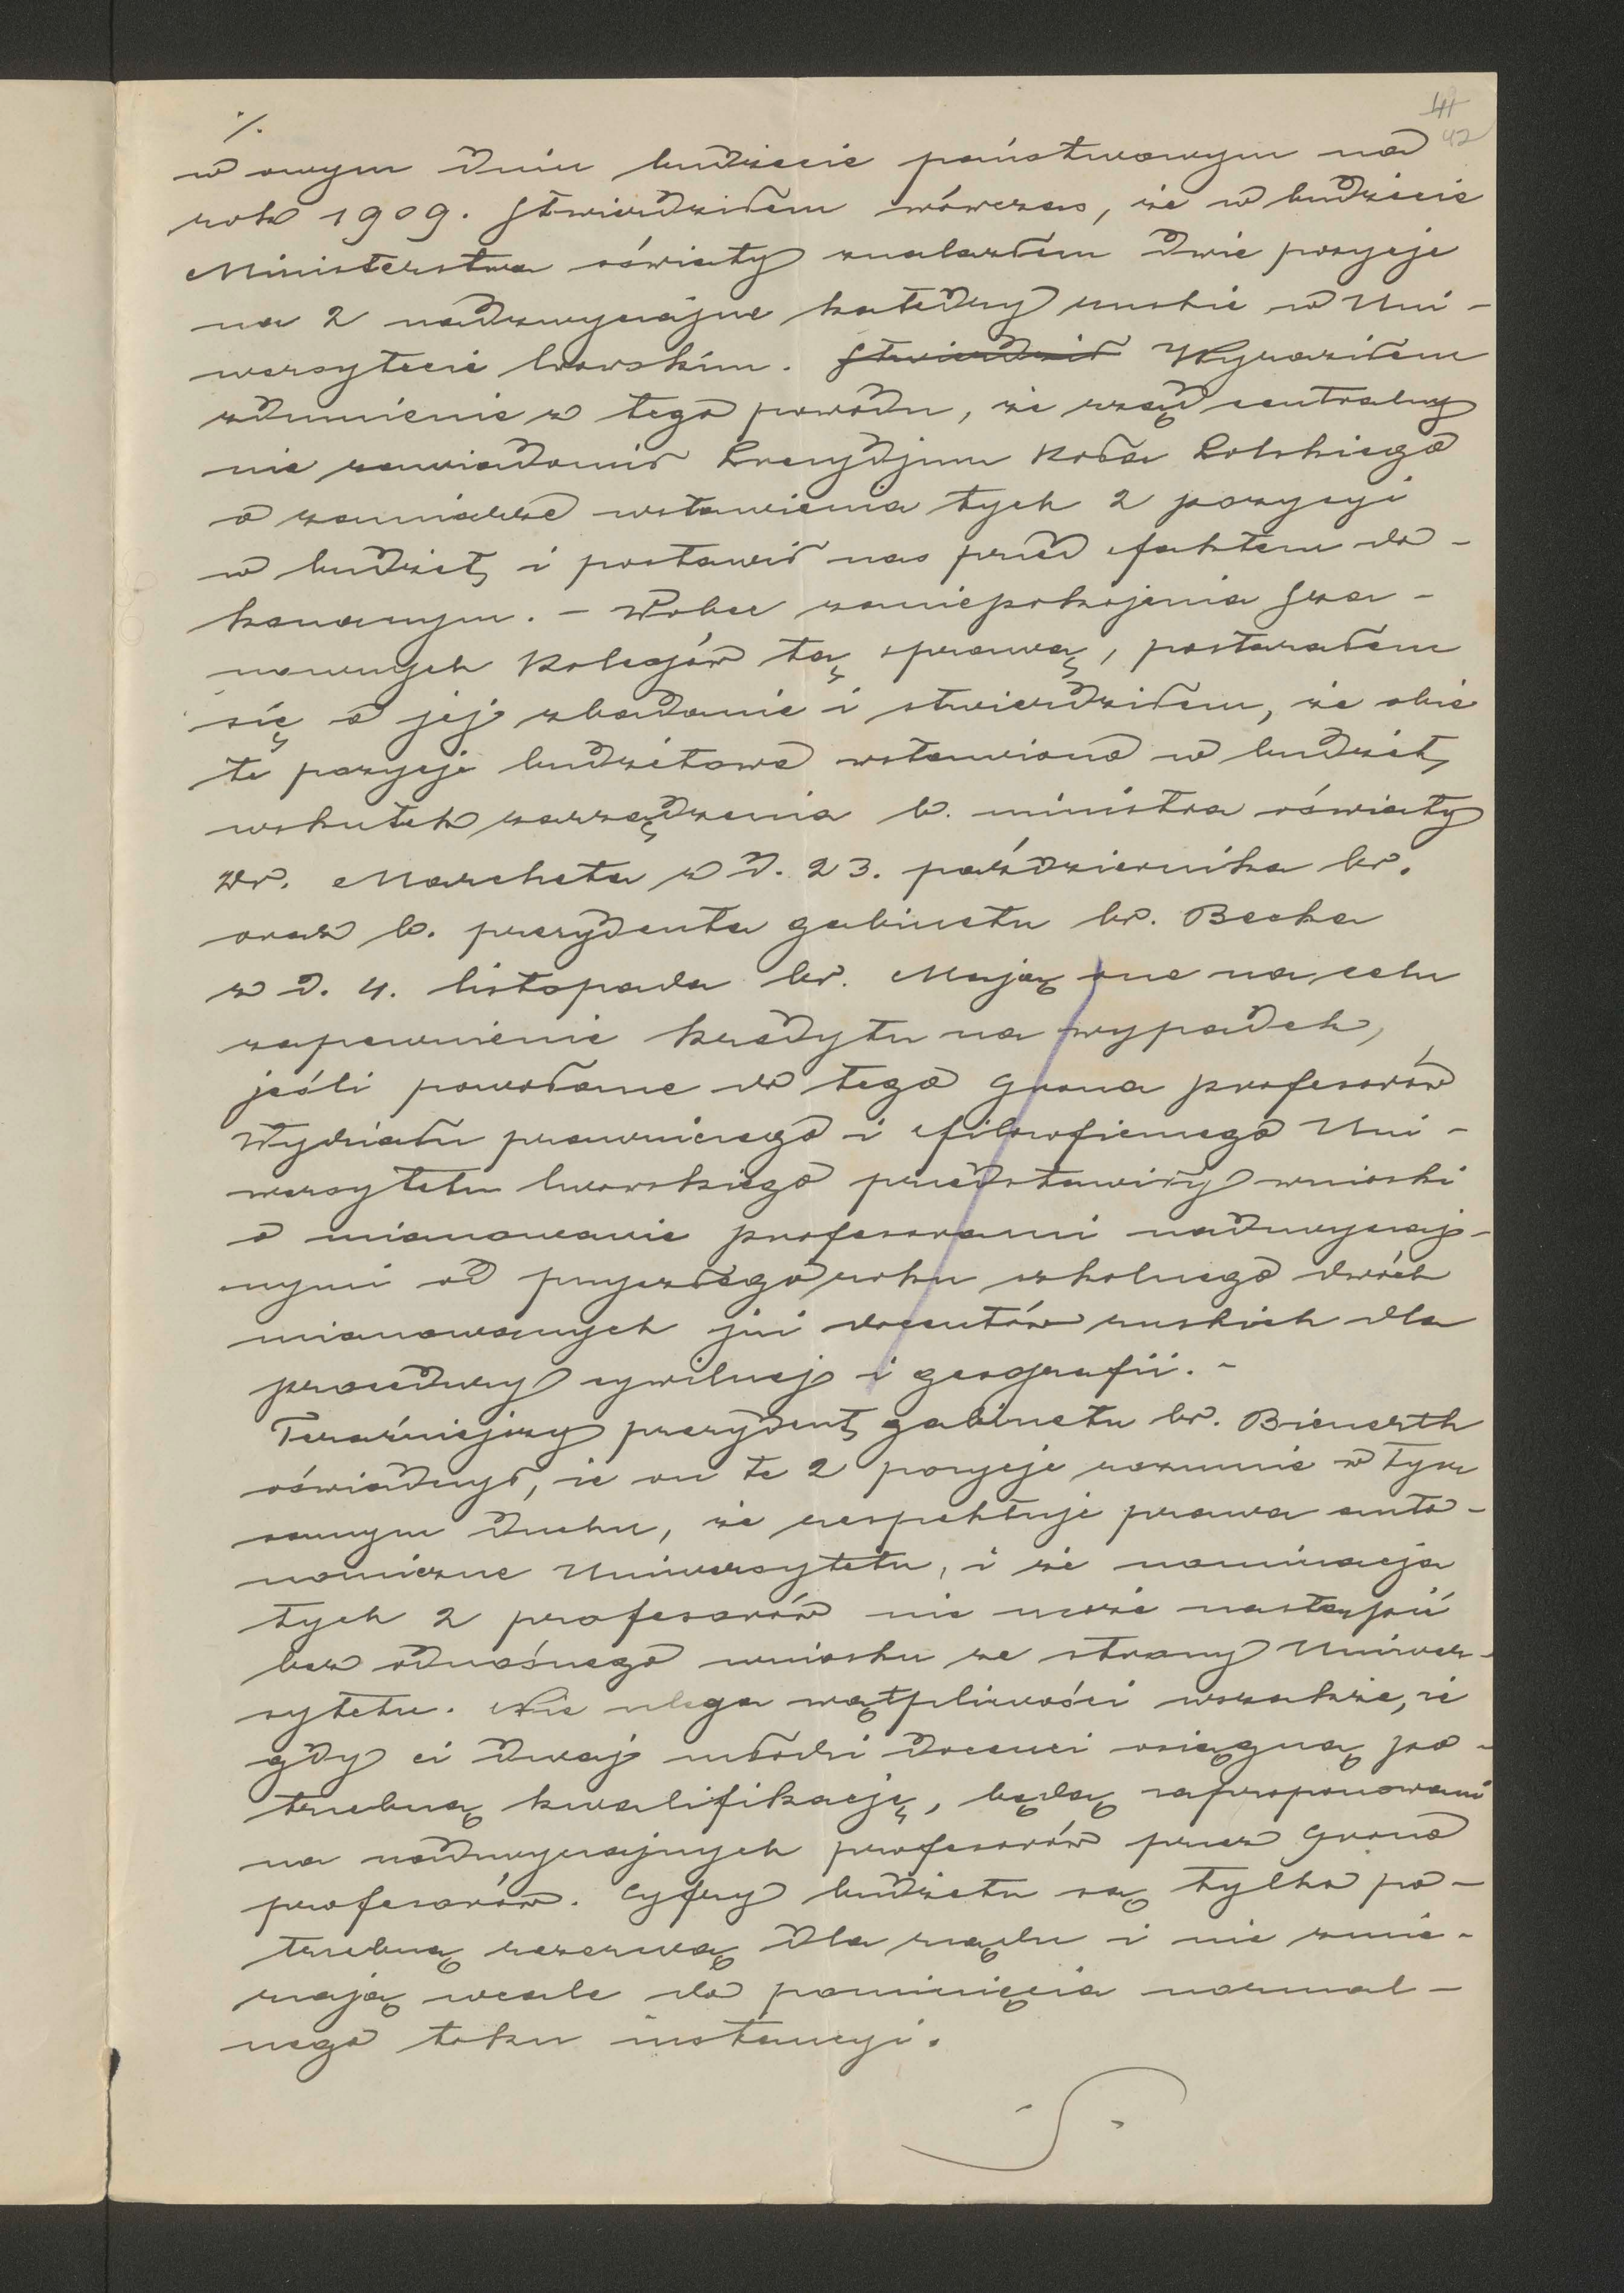 ·/.
41
42
w owym dniu budżecie państwowym na
rok 1909. Stwierdziłem wówczas, że w budżecie
Ministerstwa oświaty znalazłem dwie pozycje
na 2 nadzwyczajne katedry ruskie w Uni-
wersytecie lwowskim. Stwierdził Wyraziłem
zdumienie z tego powodu, że rząd centralny
nie zawiadomił Prezydjum Koła Polskiego
o zamiarze wstawienia tych 2 pozycyi
w budżet, i postawił nas przed faktem do-
konanym. - Wobec zaniepokojenia Sza-
nownych Kolegów tą sprawą, postarałem
się o jej zbadanie i stwierdziłem, że obie
te pozycje budżetowe wstawiono w budżet,
wskutek zarządzenia b. ministra oświaty
Dr. Marcheta z d. 23. października br.
oraz b. prezydenta gabinetu br. Becka
z d. 4. listopada br. Mają one na celu
zapewnienie kredytu na wypadek,
jeśli powołane do tego Grona profesorów
Wydziału prawniczego i filozoficznego Uni-
wersytetu lwowskiego przedstawiły wnioski
o mianowanie profesorami nadzwyczaj-
nymi od przyszłego roku szkolnego dwóch
mianowanych już docentów ruskich dla
procedury cywilnej i geografii. -
Teraźniejszy prezydent gabinetu br. Bienerth
oświadczył, że on te 2 pozycje rozumie w tym
samym duchu, że respektuje prawa auto-
nomiczne Uniwersytetu, i że nominacja
tych 2 profesorów nie może nastąpić
bez odnośnego wniosku ze strony Uniwer-
sytetu. Nie ulega wątpliwości wszakże, że
gdy ci dwaj młodzi docenci osiągną po-
trzebną kwalifikację, będą zaproponowani
na nadzwyczajnych profesorów przez Grono
profesorów. Cyfry budżetu są tylko po-
trzebną rezerwą dla rządu i nie zmie-
rzają wcale do pominięcia normal-
nego toku instancyi.